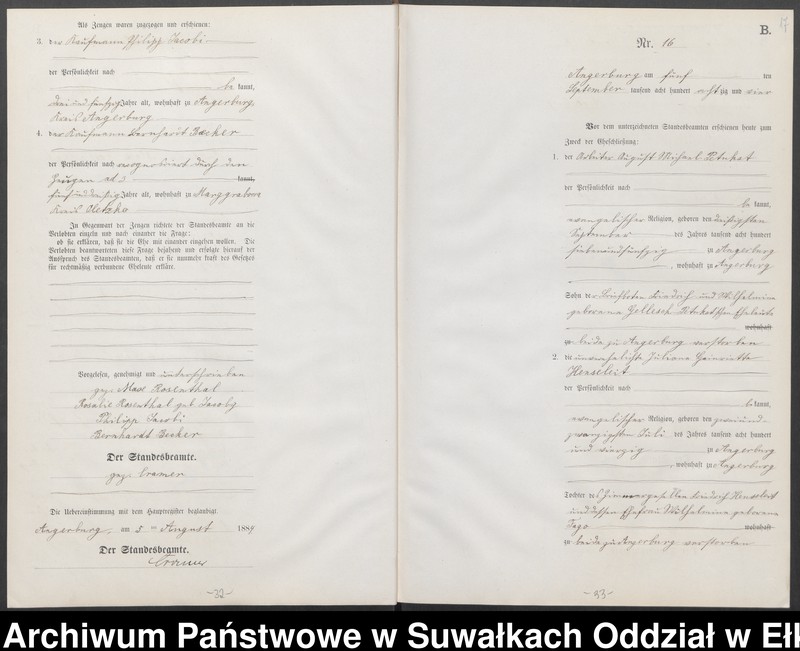 Als Zeugen waren zugezogen und erschienen:
3. der Kaufmann Philipp Jacobi
der Persönlichkeit nach
be kannt,
drei und fünfzig Jahre alt, wohnhaft zu Angerburg,
Kreis Angerburg
4. der Kaufmann Bernhardt Becker
der Persönlichkeit nach recognoscirt durch den
Zeugen ad 3 kannt,
fünf und dreißig Jahre alt, wohnhaft zu Marggrabowa
Kreis Oletzko
In Gegenwart der Zeugen richtete der Standesbeamte an die
Verlobten einzeln und nach einander die Frage:
ob sie erklären, daß sie die Ehe mit einander eingehen wollen. Die
Verlobten beantworteten diese Frage bejahend und erfolgte hierauf der
Ausspruch des Standesbeamten, daß er sie nunmehr kraft des Gesetzes
für rechtmäßig verbundene Eheleute erkläre.
Vorgelesen, genehmigt und unterschrieben
gez. Max Rosenthal
Rosalie Rosenthal geb Jacoby
Philipp Jacobi
Bernhardt Becker
Der Standesbeamte.
gez. Cramer
Die Uebereinstimmung mit dem Hauptregister beglaubigt
Angerburg, am 5 ten August 1884
Der Standesbeamte.
Cramer
-32-
17
B.
Nr. 16
Angerburg am fünf ten
September tausend acht hundert achtzig und vier
Vor dem unterzeichneten Standesbeamten erschienen heute zum
Zweck der Eheschließung:
1. der Arbeiter August Michael Petukat
der Persönlichkeit nach
be kannt,
evangelischer Religion, geboren den dreißigsten
September des Jahres tausend acht hundert
siebenundfünfzig zu Angerburg
, wohnhaft zu Angerburg
Sohn der Friedrich und Wilhelmine
geborene Gellesch Petukat'schen Eheleute
wohnhaft
zu beide zu Angerburg verstorben
2. die unverehelichte Juliane Heinriette
Henseleit
der Persönlichkeit nach
be kannt,
evangelischer Religion, geboren den zweiund-
zwanzigsten Juli des Jahres tausend acht hundert
und vierzig zu Angerburg
, wohnhaft zu Angerburg
Tochter des Zimmergesellen Friedrich Henseleit
und dessen Ehefrau Wilhelmine geborene
wohnhaft
zu beide zu Angerburg verstorben
-33-
Archiwum Państwowe w Suwałkach Oddział w Ełk